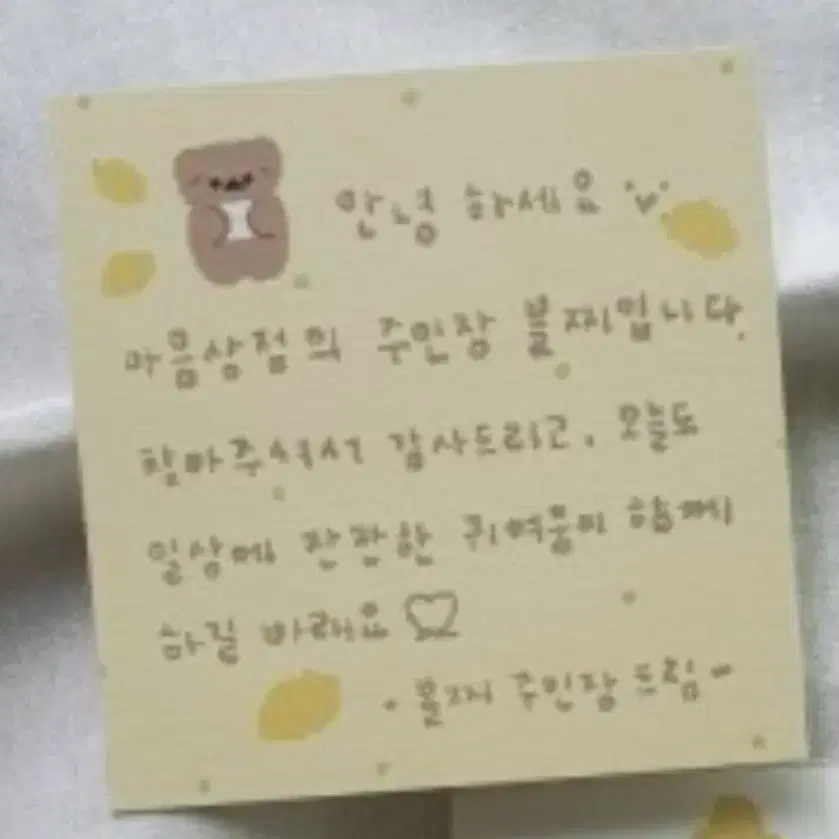 안녕하세요
마음상점의 주인장 볼찌입니다.
찾아주셔서 감사드리고, 오늘도
일상에 잔잔한 귀여움이 함께
하길 바래요♡
- 볼찌 주인장 드림 -